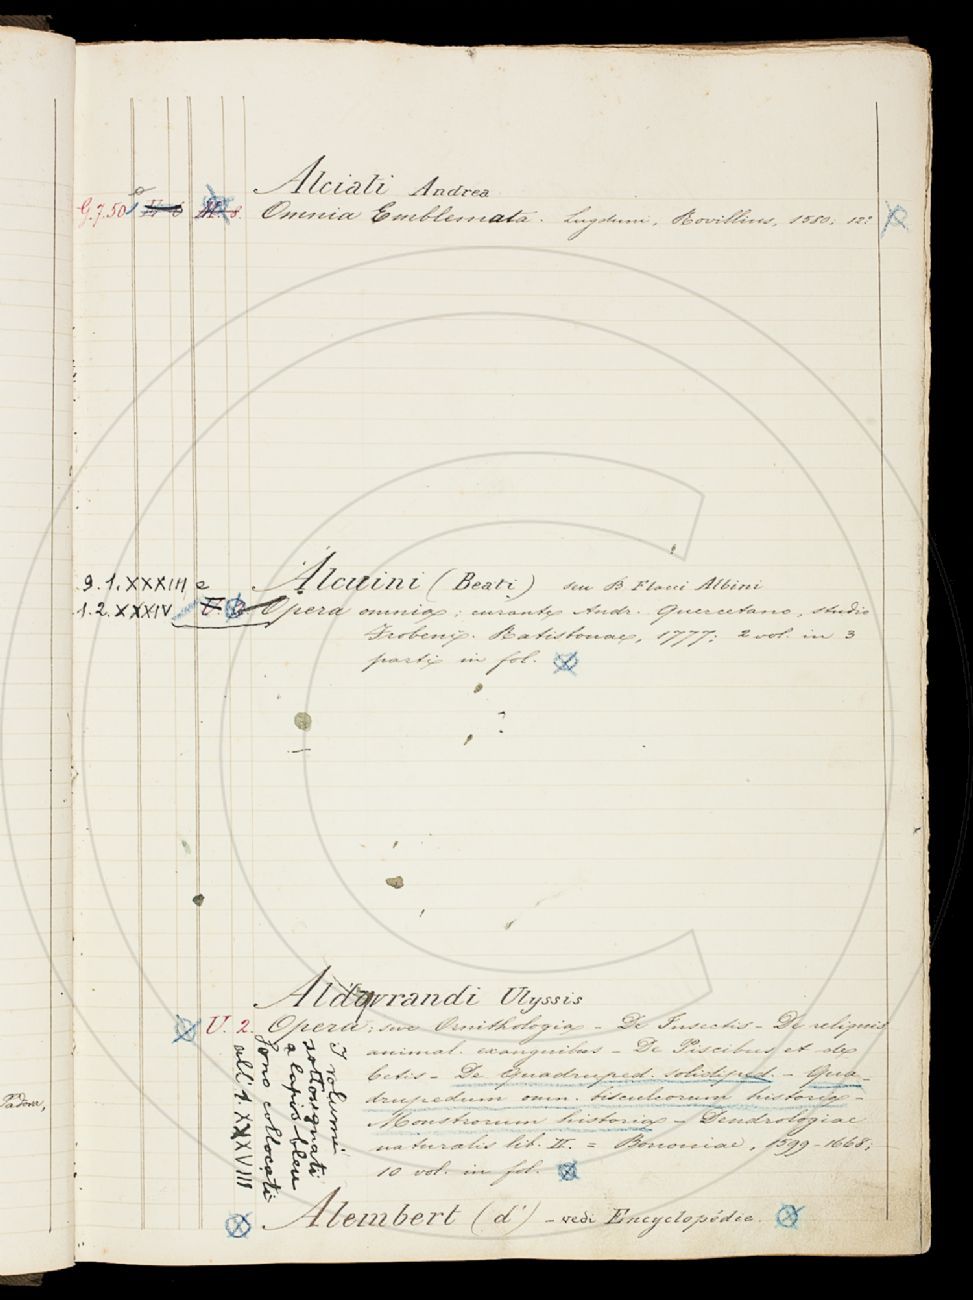 Alciati Andrea
G.7.50 M. 8. Omnia Emblemata. Lugduni, Rovillius, 1580; 12º
9.1.XXXIII e Alcuini (Beati) seu B Flacci Albini
1.2.XXXIV Opera omnia; curante Andr. Quercetano, studio
Frobenii. Ratisbonae, 1777; 2 vol. in 3
parti in fol.
Aldovrandi Ulyssis
U. 2. Opera; sive Ornithologia - De Insectis - De reliquis
animal. exanguibus - De Piscibus et de
Cetis - De Quadruped. solidiped. - Qua-
drupedum omn. bisulcorum historia -
Monstrorum historia - Dendrologiae
naturalis lib. II. = Bononiae, 1599-1668;
10 vol. in fol.
I volumi
sottosegnati
a lapis bleu
sono collocati
all' 1. XXXVIII
Alembert (d') - vedi Encyclopédie.
Padova,